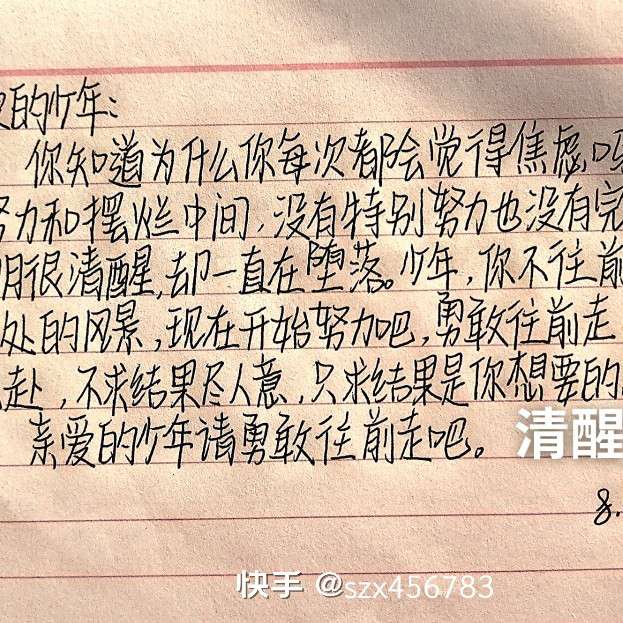 的少年：
你知道为什么你每次都会觉得焦虑吗
努力和摆烂中间，没有特别努力也没有完
明很清醒，却一直在堕落。少年，你不往前
处的风景，现在开始努力吧，勇敢往前走
赴，不求结果尽人意，只求结果是你想要的
亲爱的少年请勇敢往前走吧。
清醒
8.
快手 @szx456783